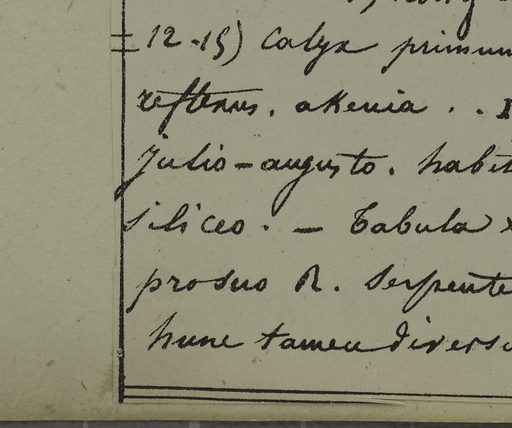 12-15) Calyx primum
reflexus. akenia . .
Julio-augusto. habit
siliceo. — Tabula
prosuo R. Serpente
hunc tamen diversu